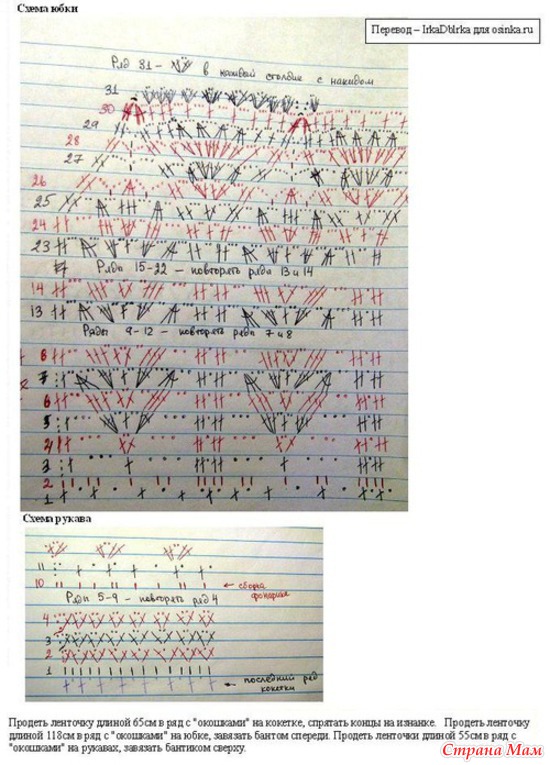 Схема юбки
Перевод – IrkaDblrka для osinka.ru
Ряд 31 – в каждый столбик с накидом
31
30
29
28
27
26
25
24
23
Ряды 15-22 – повторять ряды 13 и 14
14
13
Ряды 9-12 – повторять ряды 7 и 8
8
7
6
5
4
3
2
1
Схема рукава
11
10 ← сборка фонарика
Ряды 5-9 – повторять ряд 4
4
3
2
1
← последний ряд кокетки
Продеть ленточку длиной 65см в ряд с "окошками" на кокетке, спрятать концы на изнанке. Продеть ленточку
длиной 118см в ряд с "окошками" на юбке, завязать бантом спереди. Продеть ленточки длиной 55см в ряд с
"окошками" на рукавах, завязать бантиком сверху.
Страна Мам